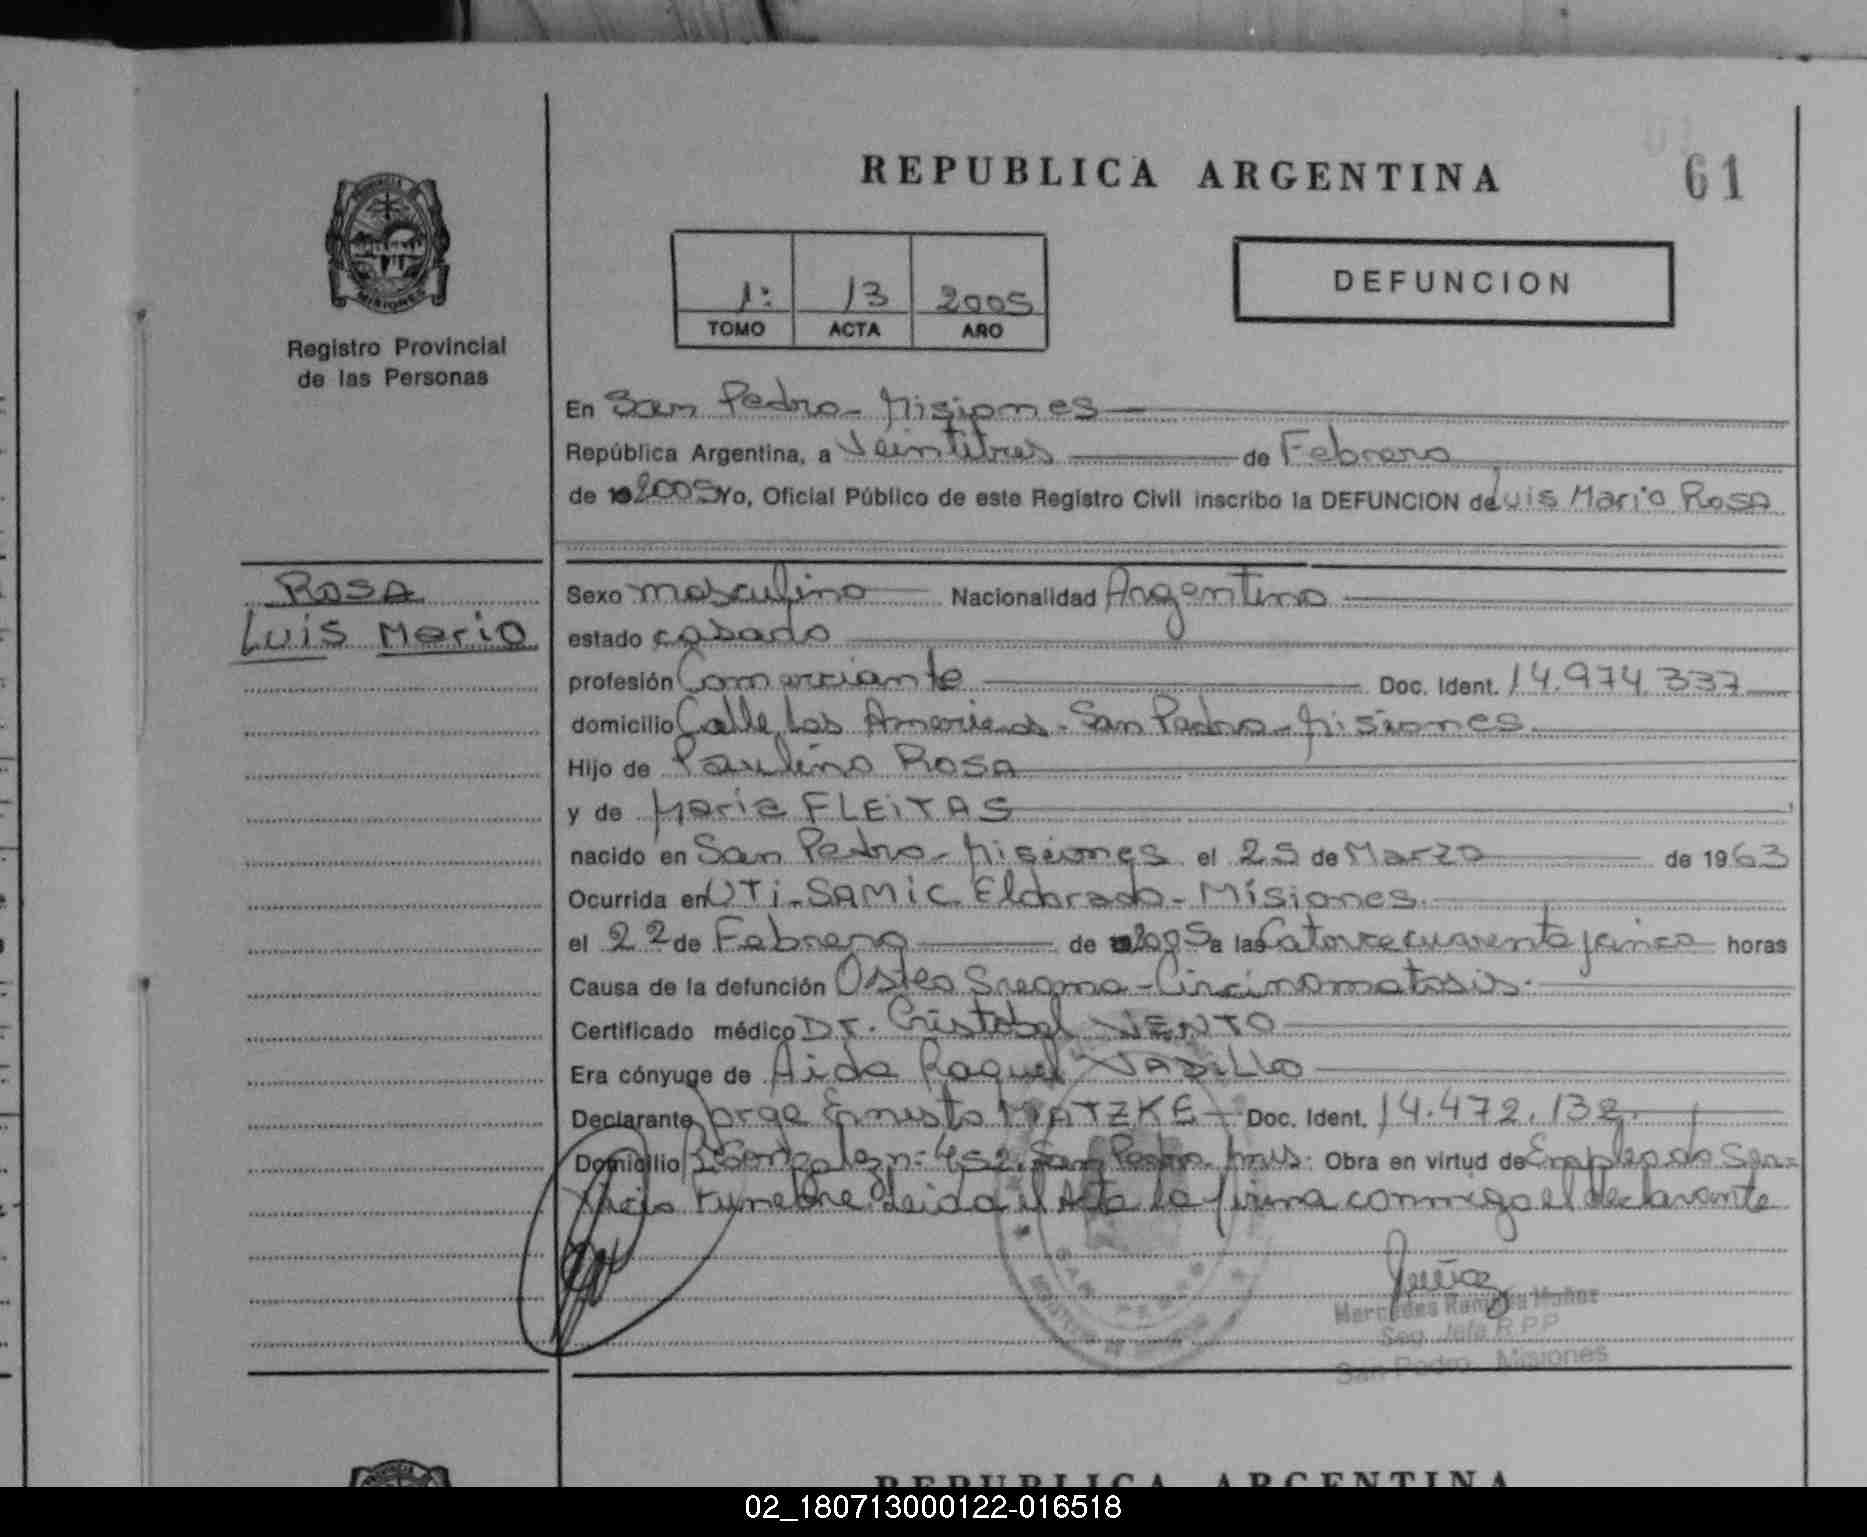 REPUBLICA ARGENTINA
61
1: 13 2005
TOMO ACTA AÑO
DEFUNCION
MISIONES
Registro Provincial
de las Personas
En San Pedro - Misiones
República Argentina, a Veintitres de Febrero
de 2005 Yo, Oficial Público de este Registro Civil inscribo la DEFUNCION de Luis Mario Rosa
ROSA
Luis Mario
Sexo masculino Nacionalidad Argentino
estado casado
profesión Comerciante Doc. Ident. 14.974.337
domicilio Calle Las Americas - San Pedro - Misiones
Hijo de Paulino ROSA
y de Maria FLEITAS
nacido en San Pedro - Misiones el 25 de Marzo de 1963
Ocurrida en UTI - SAMIC Eldorado - Misiones
el 22 de Febrero de 2005 a las Catorce cuarenta y cinco horas
Causa de la defunción Osteo - 
Certificado médico Dr. Cristobal VENTO
Era cónyuge de Aida Raquel VADILLO
Declarante Jorge Ernesto MATZKE Doc. Ident. 14.472.132
Domicilio n: 452 San Pedro Mns. Obra en virtud de Empleado Ser-
vicio Funebre. Leida el Acta la firma conmigo el declarante
SAN PEDRO
Mercedes Ramona Muñoz
Seg. Jefa R.P.P.
San Pedro - Misiones
REPUBLICA ARGENTINA
02_180713000122-016518